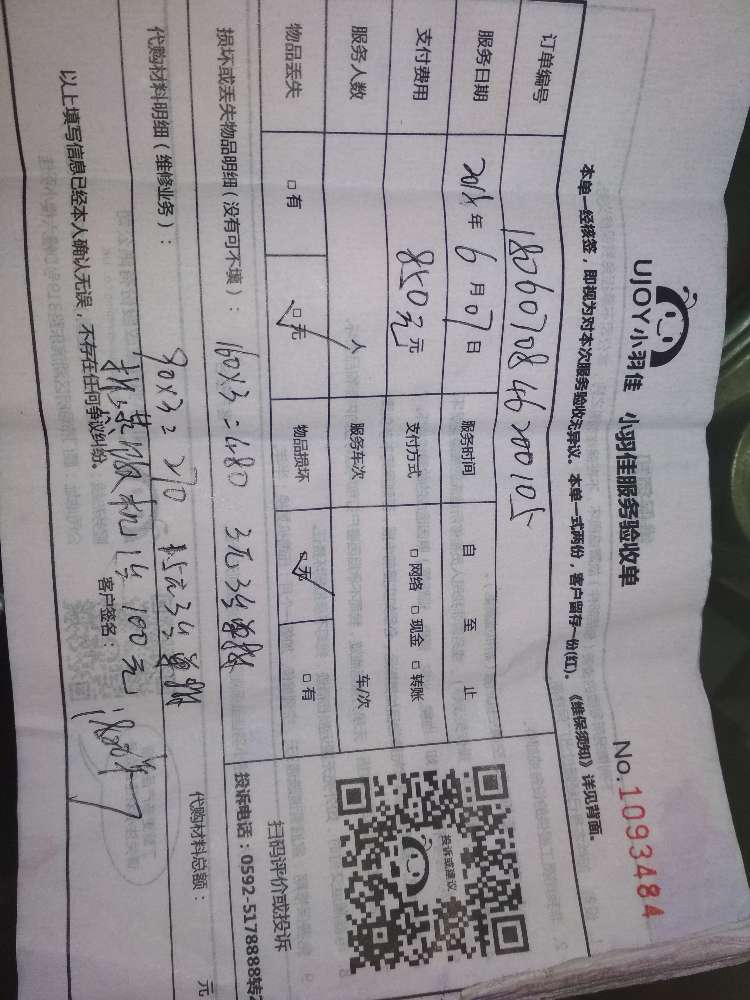 UJOY小羽佳 小羽佳服务验收单
No.1093484
本单一经核签，即视为对本次服务验收无异议。本单一式两份，客户留存一份(红)。《维保须知》详见背面。
订单编号 1806070846200105
服务日期 2018年 6月 07日 服务时间 自 至 止
支付费用 850元 元 支付方式 □网络 □现金 □转账
服务人数 人 服务车次 车/次
物品丢失 □有 □无 物品损坏 □无 □有
投诉或建议
扫码评价或投诉
投诉电话：0592-5178888转
损坏或丢失物品明细（没有可不填）： 160X3=480
90X3=270
代购材料明细（维修业务）：
100元
代购材料总额： 元
以上填写信息已经本人确认无误，不存在任何争议纠纷。 客户签名：